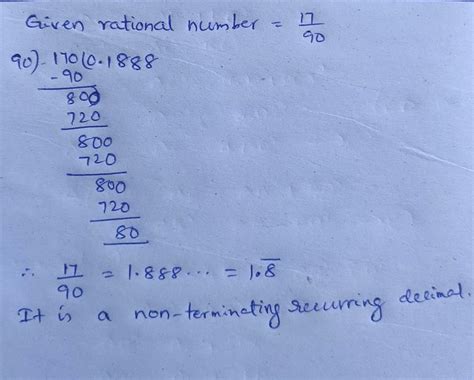 Given rational number = 17/90
90) 170 (0.1888
-90
800
720
800
720
800
720
80
∴ 17/90 = 1.888... = 1.8̅
It is a non-terminating recurring decimal.